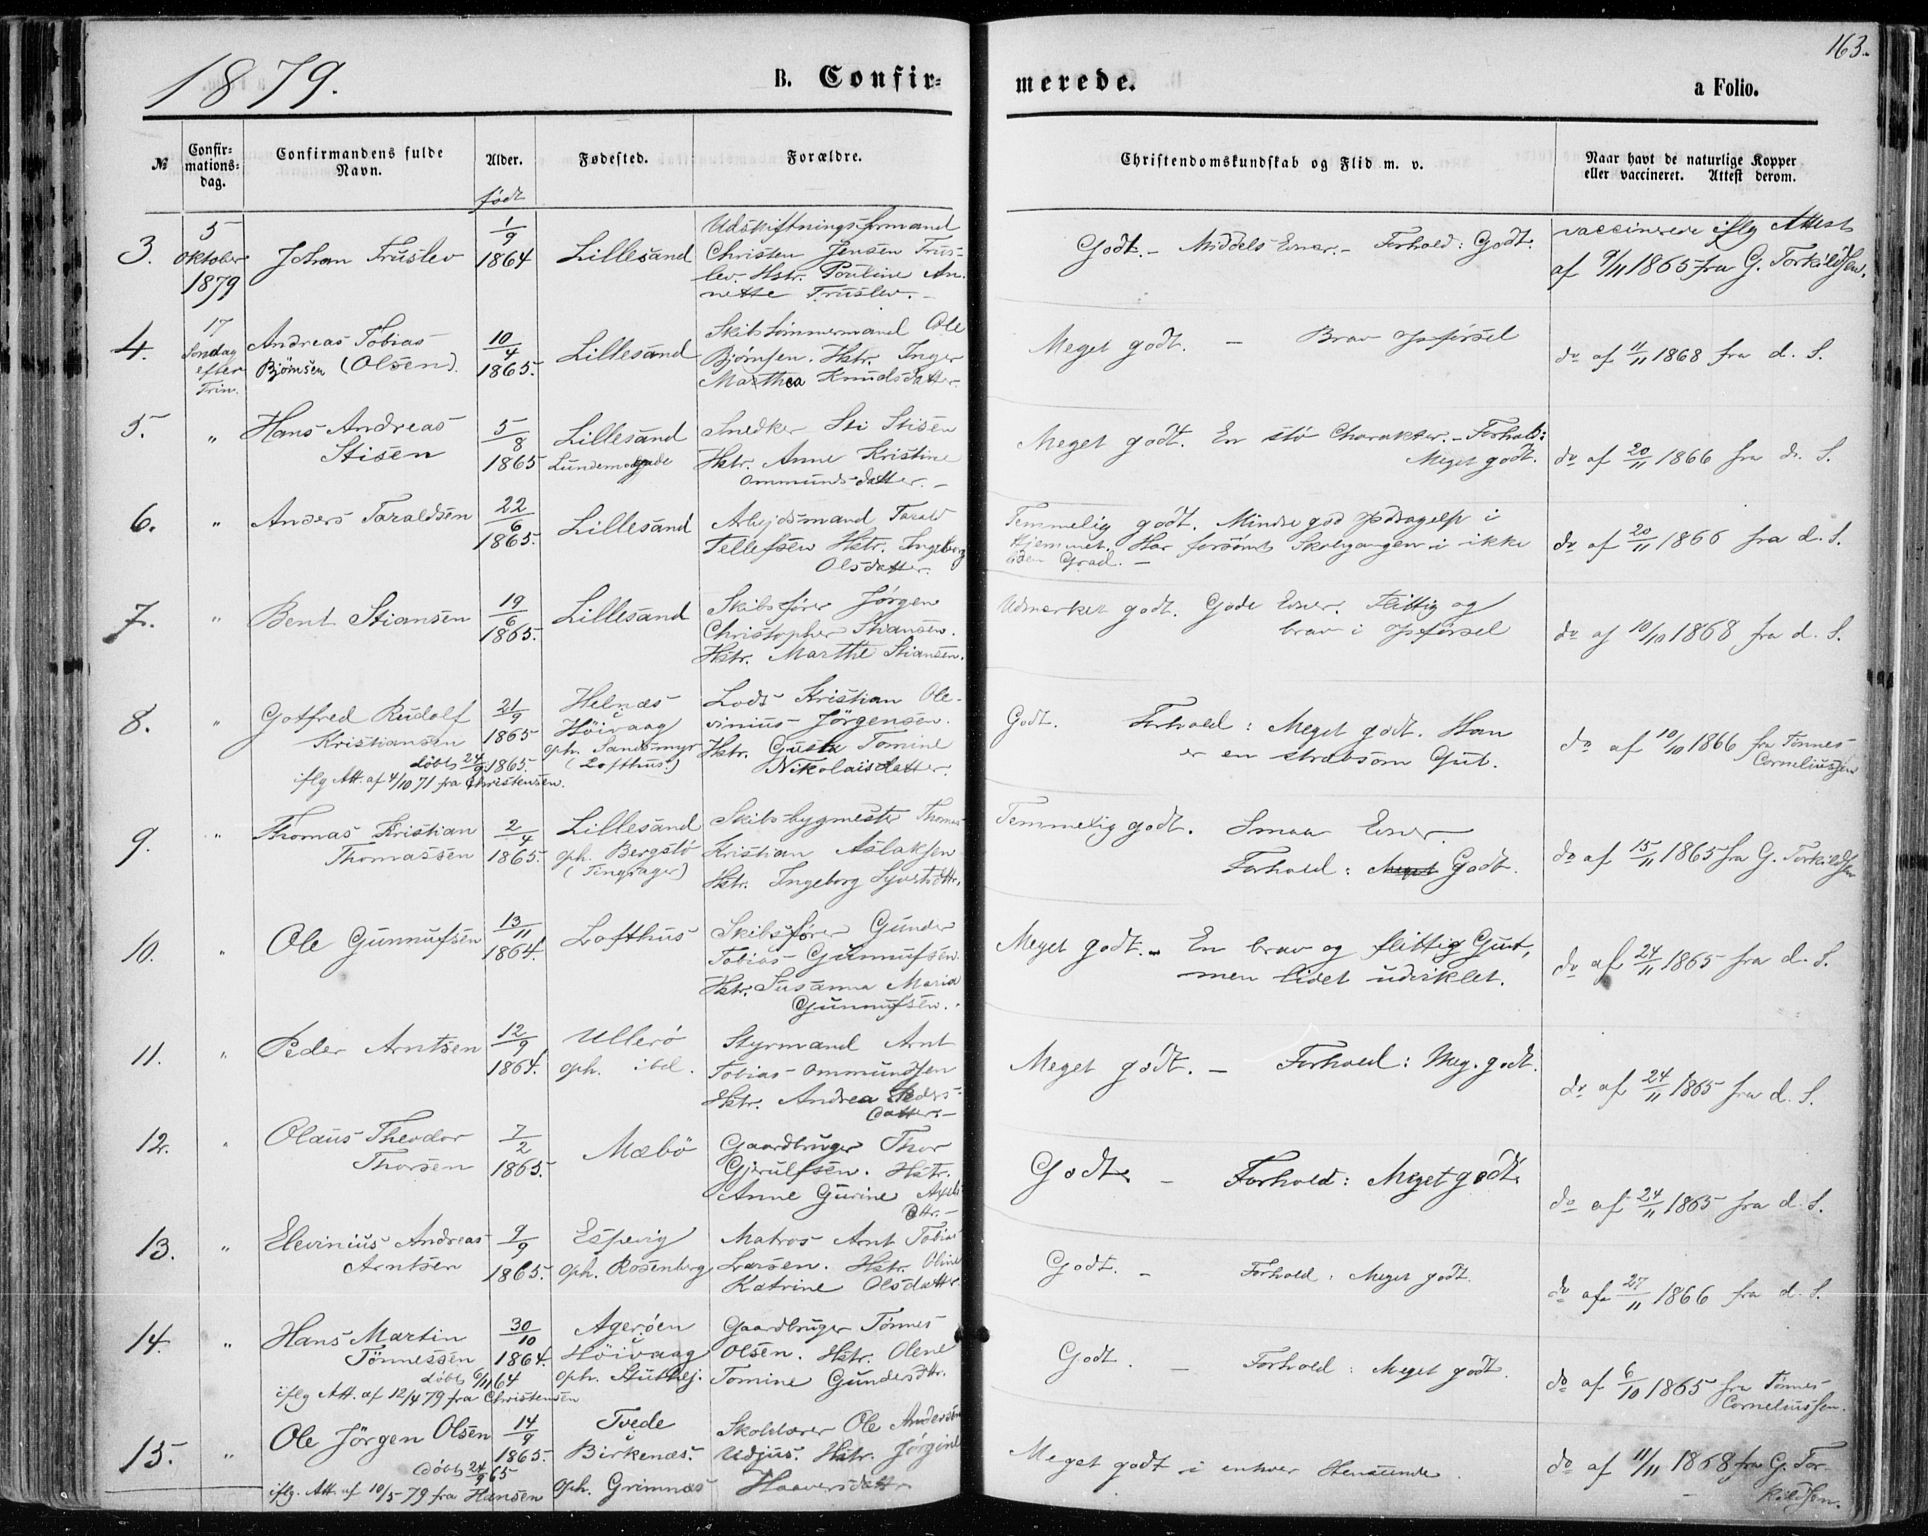 163.
1879.
B. Confir-
merede.
a Folio.
№
Confir-
mations-
dag.
Confirmandens fulde
Navn.
Alder.
født
Fødested.
Forældre.
Christendomskundskab og Flid m. v.
Naar havt de naturlige Kopper
eller vaccineret. Attest derom.
3.
5
Oktober
1879
Johan Truslev
1/9
1864
Lillesand
Udskiftningsformand
Christen Jensen Trus-
lev. Hstr. Pouline An-
nette Truslev. -
Godt. - Middels Evner. - Forhold: Godt.
vaccinerede iflg Attest
af 9/11 1865 fra G. Torkildsen.
4.
17
Søndag
efter
Trin.
Andreas Tobias
Bjørnsen (Olsen).
10/4
1865.
Lillesand
Skibstømmermand Ole
Bjørnsen. Hstr. Inger
Marthea Knudsdatter.
Meget godt. - Brav Opførsel
do af 11/11 1868 fra d. S.
5.
"
Hans Andreas
Stisen
5/8
1865
Lillesand
Snedker Sti Stisen
Hstr. Anne Kristine
Ommundsdatter. -
Meget godt. En stø Charakter. - Forhold:
Meget godt.
do af 20/11 1866 fra d. S.
6.
"
Anders Taraldsen
22/6
1865.
Lillesand
Arbejdsmand Tarald
Tellefsen Hstr. Ingeborg
Olsdatter.
Temmelig godt. Mindre god Opdragelse i
Hjemmet. Har forsømt Skolegangen i ikke
liden Grad. -
do af 20/11 1866 fra d. S.
7.
"
Bent Stiansen
19/6
1865.
Lillesand
Skibsfører Jørgen
Christopher Stiansen.
Hstr. Marthe Stiansen.
Udmærket godt. Gode Evner. Flittig og
brav i Opførsel
do af 10/10 1868 fra d. S.
8.
"
Gotfred Rudolf
Kristiansen
døbt 24/9 1865.
iflg Att. af 4/10 71 fra Christensen.
21/9
1865
Helnæs
Høivaag
oph. Sandsmyr
(Lofthus.)
Lods Kristian Ole-
vinius Jørgensen.
Hstr. Gusta Tomine
Nikolaisdatter.
Godt. Forhold: Meget godt. Han
er en stræbsom Gut.
do af 10/10 1866 fra Tønnes
Corneliussen
9.
"
Thomas Kristian
Thomassen
2/4
1865.
Lillesand
oph. Bergstø
(Tingsager)
Skibsbygmester Thomas
Kristian Aslaksen
Hstr. Ingeborg
Temmelig godt. Smaa Evner
Forhold: Meget Godt.
do af 15/11 1865 fra G. Torkildsen
10.
"
Ole Gunnufsen
13/11
1864.
Lofthus
Skibsfører Gunder
Tobias Gunnufsen.
Hstr. Susanna Maria
Gunnufsen.
Meget godt. - En brav og flittig Gut,
men lidet udviklet.
do af 24/11 1865 fra d. S.
11.
"
Peder Arntsen
12/9
1864.
Ullerø
oph. ibd.
Styrmand Arnt
Tobias Ommundsen
Hstr. Andrea Peders-
datter -
Meget godt. - Forhold: Meg. godt.
do af 24/11 1865 fra d. S.
12.
"
Olaus Theodor
Thorsen
7/2
1865.
Mæbø
Gaardbruger Thor
Gjerulfsen. Hstr.
Anne Gurine Axels-
dttr. -
Godt. - Forhold: Meget godt.
do af 24/11 1865 fra d. S.
13.
"
Elevinius Andreas
Arntsen
9/9
1865.
Espevig
oph. Rosenberg
Matros Arnt Tobias
Larsen. Hstr. Oline
Katrine Olsdattr.
Godt. - Forhold: Meget godt.
do af 27/11 1866 fra d. S.
14.
"
Hans Martin
Tønnessen
døbt 6/11 64
iflg Att. af 12/4 79 fra Christensen
30/10
1864.
Agerøen
Høivaag
Gaardbruger Tønnes
Olsen. Hstr. Olene
Tomine Gundersdttr.
Godt. - Forhold: Meget godt.
do af 6/10 1865 fra Tønnes
Corneliussen.
15.
"
Ole Jörgen Olsen
døbt 24/9 65
iflg. Att. af 10/5 79 fra Hansen
14/9
1865.
Tvede
Birkenæs.
oph. Grimnæs
Skolelærer Ole Andersen
Udjus. Hstr. Jørgine
Haaversdattr
Meget godt i enhver Henseende.
do af 11/11 1868 fra G. Tor-
kildsen.